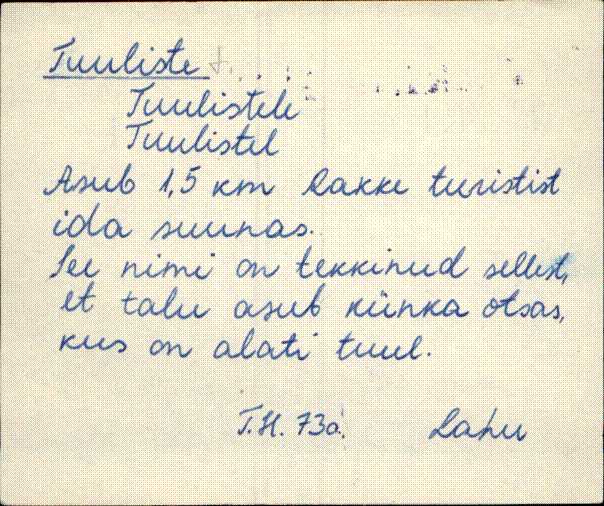 Tuuliste t.
Tuulistele
Tuulistel
Asub 1,5 km Rakke turistist
ida suunas.
See nimi on tekkinud sellest,
et talu asub künka otsas,
kus on alati tuul.
T.H. 73a. Lahu